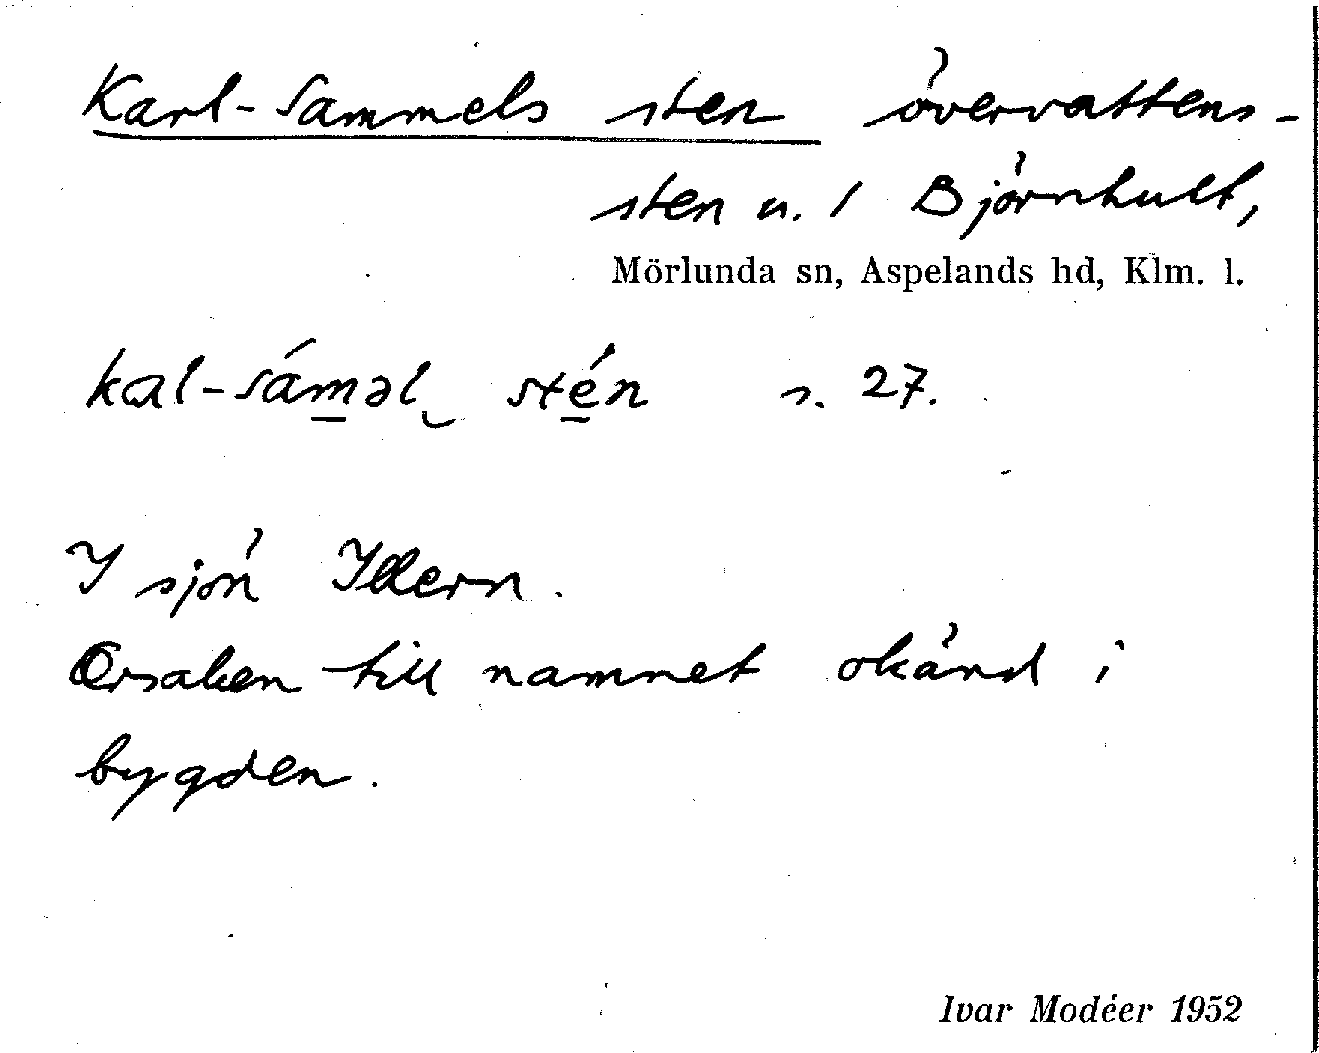 Karl-Sammels sten övervattens-
sten u. 1 Björnhult,
Mörlunda sn, Aspelands hd, Klm. l.
kal-sáməl stén s. 27.
I sjön Illern.
Orsaken till namnet okänd i
bygden.
Ivar Modéer 1952